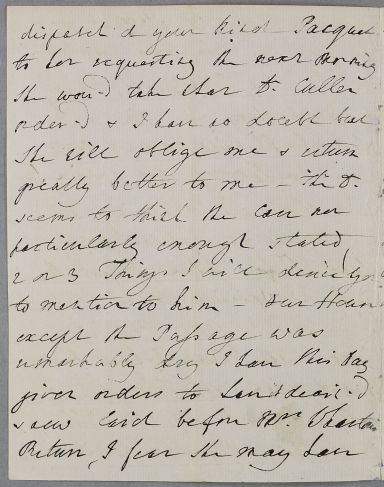 dispatch'd your kind Pacquet
to her requesting the next morning
She wou'd take what Dr. Cullen
order'd & I have no doubt but
She will oblige me & return
greatly better to me - The Dr.
seems to think the Case not
particularly enough stated
2 or 3 Things I will desire
to mention to him - our House
except the Passage was
remarkably dry I have this day
given orders to have
& new laid before Mrs.
Return, I fear She may have